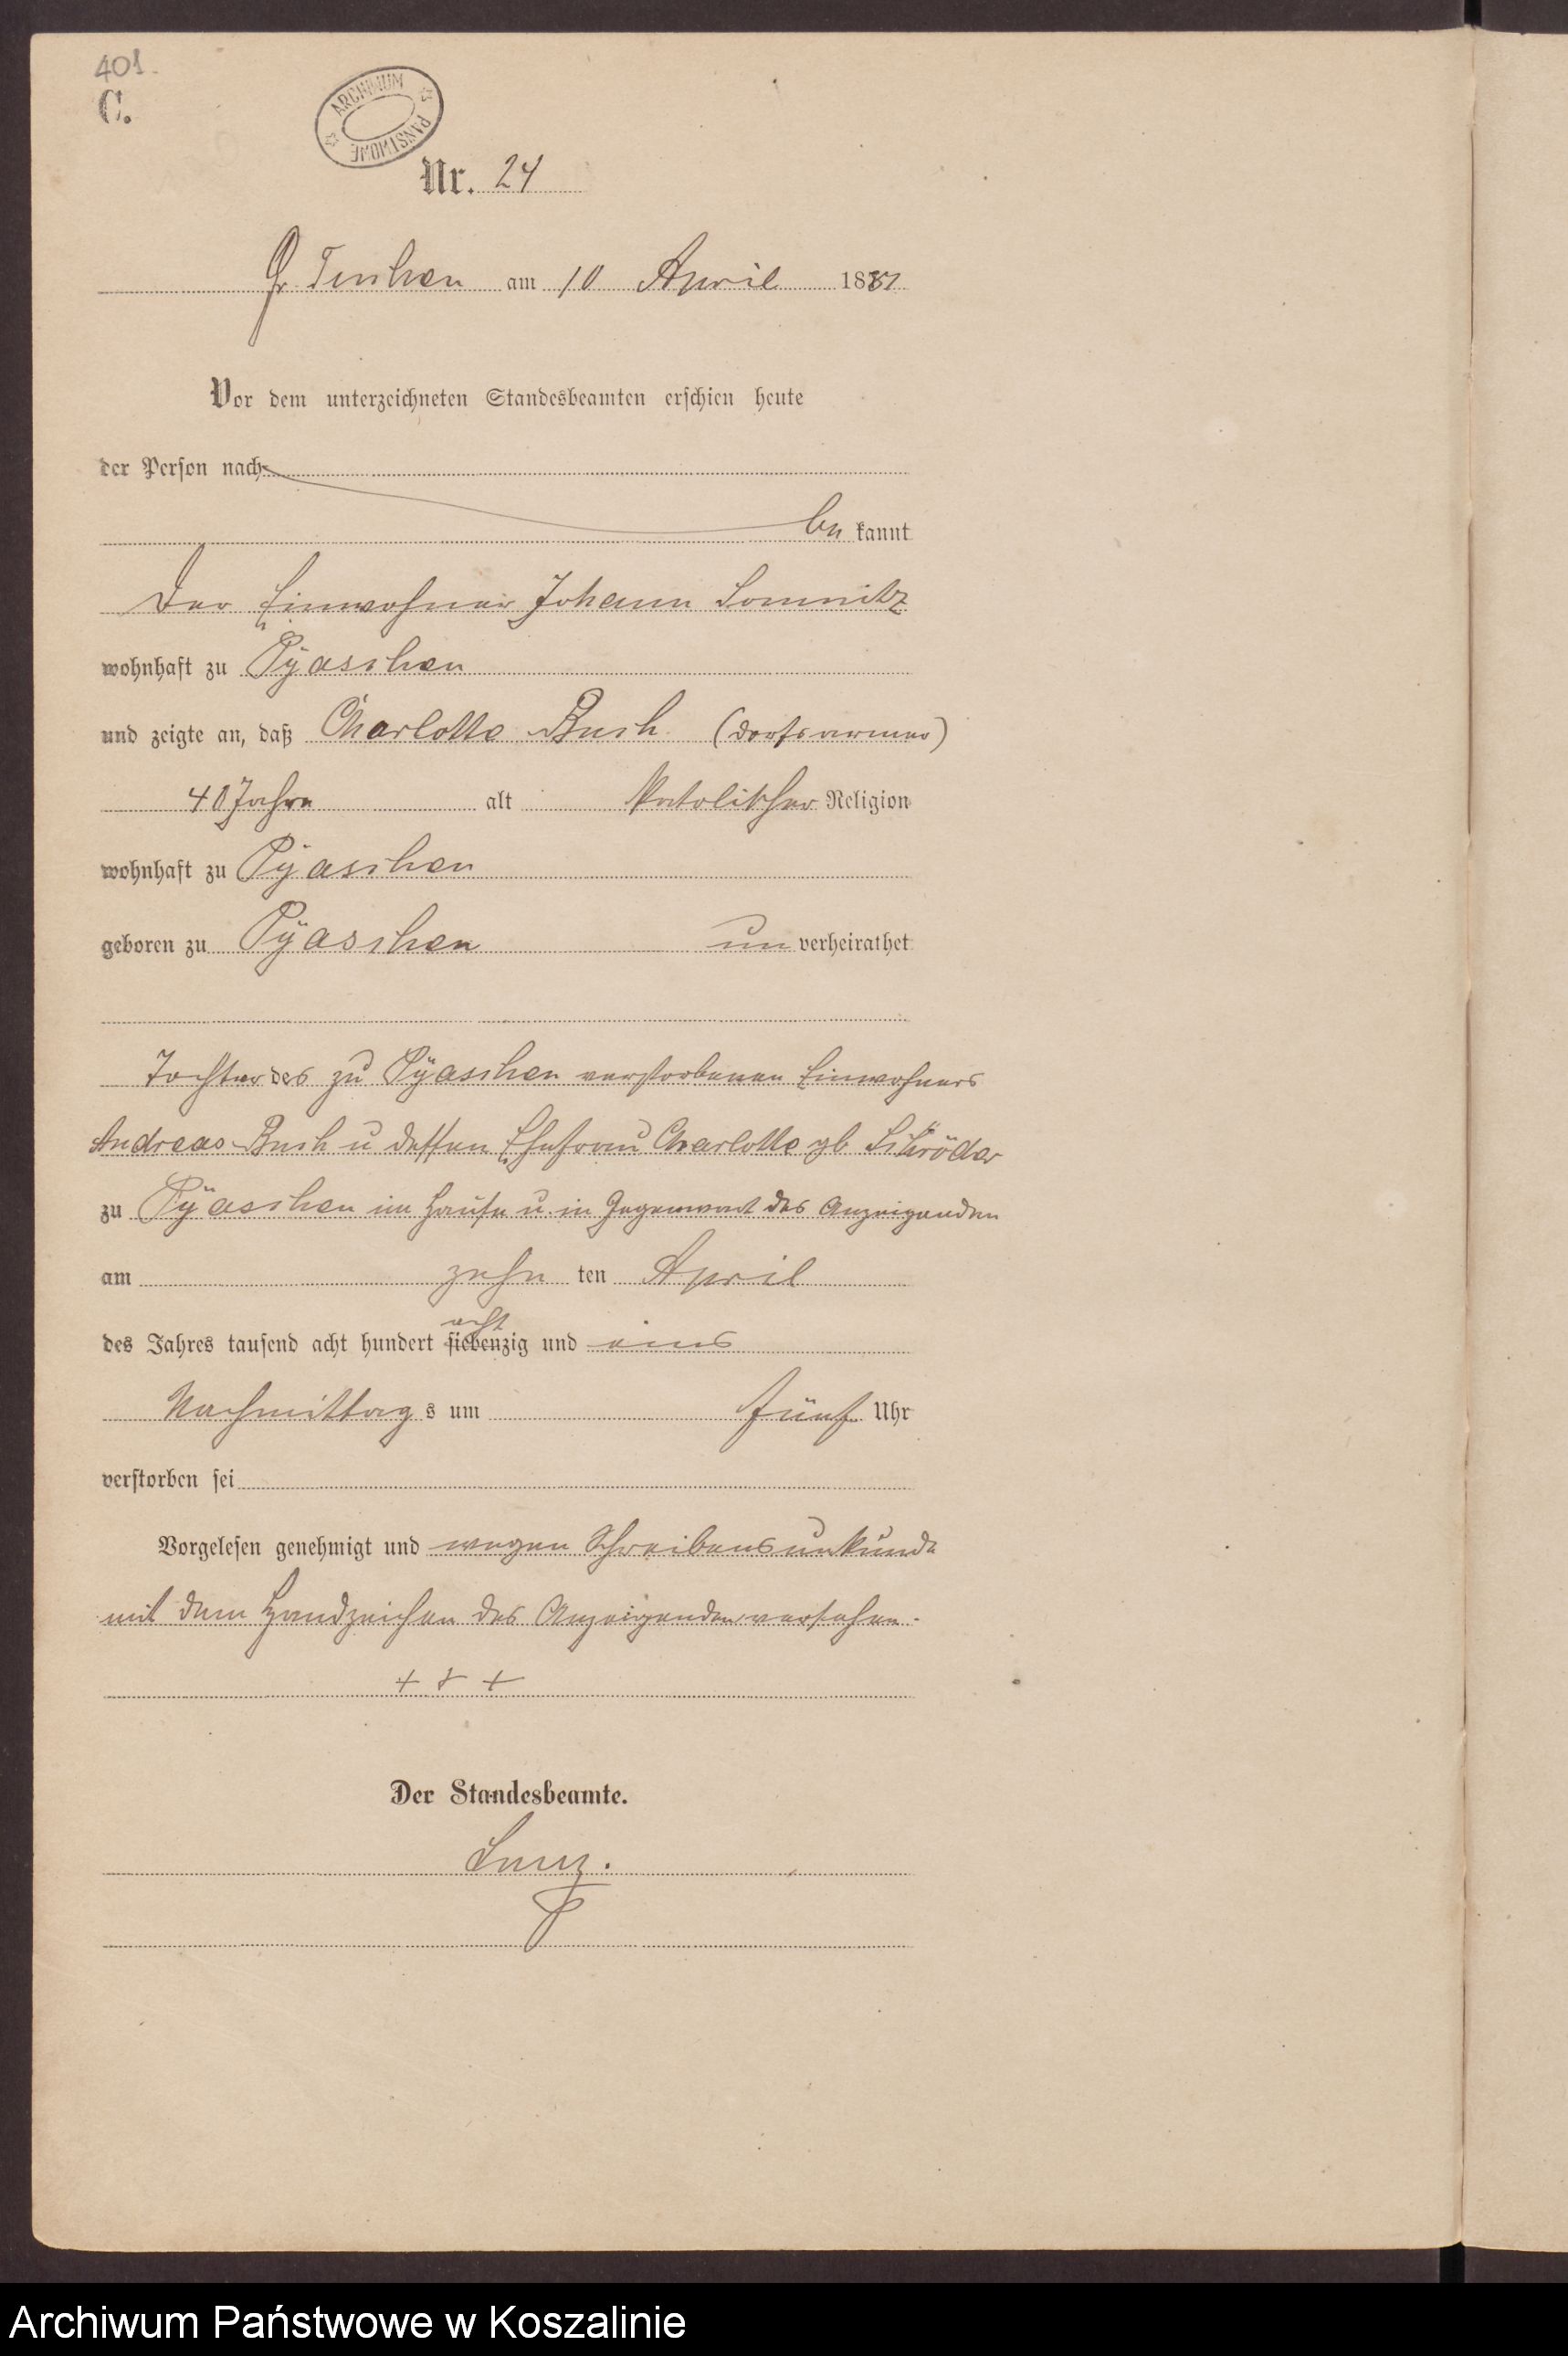 401.
C.
ARCHIWUM PAŃSTWOWE
Nr. 24
Gr. Tuchen am 10 April 1881
Vor dem unterzeichneten Standesbeamten erschien heute
der Person nach
be kannt
Der Einwohner Johann Somnitz
wohnhaft zu Pÿaschen
und zeigte an, daß Charlotte Busch (Dorfsarmer)
40 Jahre alt katolischer Religion
wohnhaft zu Pÿaschen
geboren zu Pÿaschen un verheirathet
Tochter des zu Pÿaschen verstorbenen Einwohners
Andreas Busch u dessen Ehefrau Charlotte gb Schröder
zu Pÿaschen im Hause u. in Gegenwart des Anzeigenden
am zehn ten April
des Jahres tausend acht hundert siebenzig und eins
acht
Nachmittag s um fünf Uhr
verstorben sei
Vorgelesen genehmigt und wegen Schreibensunkunde
mit dem Handzeichen des Anzeigenden versehen.
+ + +
Der Standesbeamte.
Archiwum Państwowe w Koszalinie